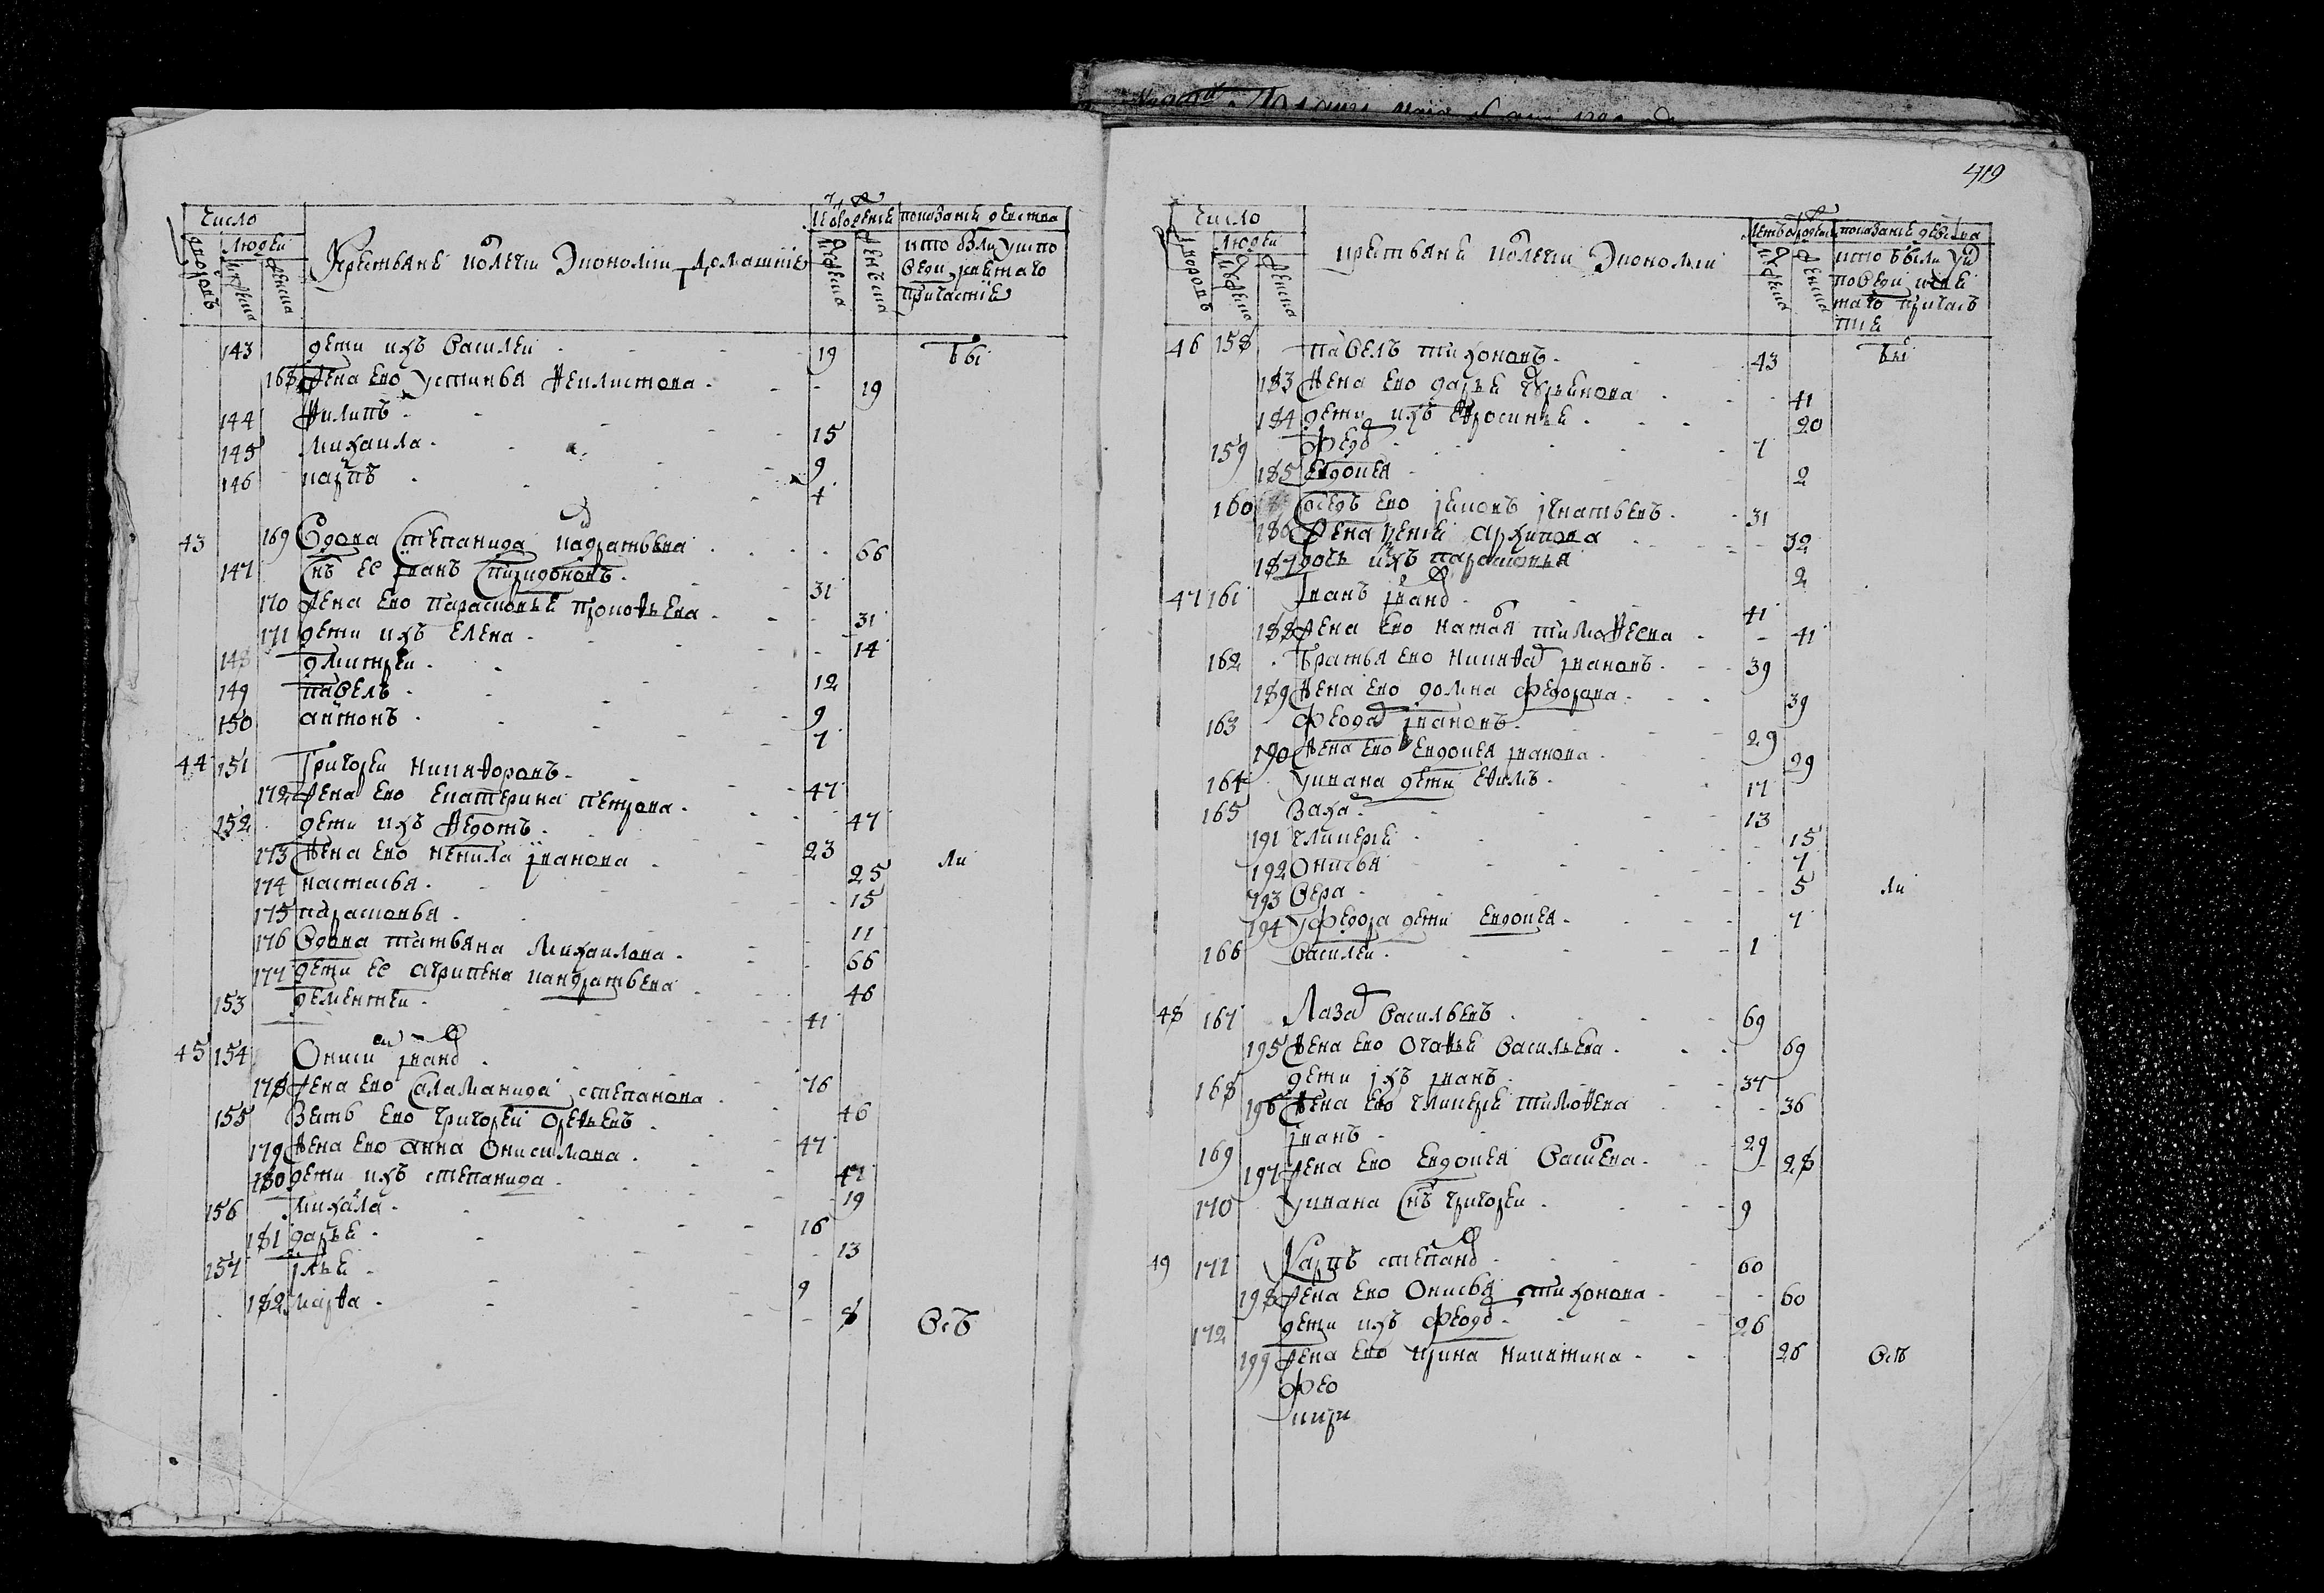 число
дворовъ
людей
мужеска
женска
Крестьяне колеги Экономии Домашние
мужеска
женска
показание действа
кто были у испо
веди и святаго
причастие
143 дети ихъ Василеи 19 бы
168 жена ево Устинья Феилистова 19
144 Филипъ 15
145 Михаила 9
146 Карпъ 4
43 169 Вдова Степанида Кадратьева 66
147 Снъ ее Иванъ Спиридоновъ 31
170 жена ево Парасковье Прокофьева 31
171 дети ихъ Елена 14
148 Дмитреи 12
149 Павелъ 9
150 Антонъ 7
44 151 Григореи Никифоровъ 47
172 жена ево Екатерина Петрова 47
152 дети ихъ Федотъ 23
173 жена ево Ненила Иванова 25 ли
174 Настасья 15
175 Парасковья 11
176 Вдова Татьяна Михаилова 66
177 дети ее Агрипена Кандратьева 46
153 Дементеи 41
45 154 Ониси Ивано 76
178 жена ево Саламанида Степанова 46
155 Зеть ево Григореи 47
179 жена ево Анна Онисимова 47
180 дети ихъ Степанида 19
156 Михаила 16
181 Дарье 13
157 Илье 9
182 Марфа 8 всѣ
419
число
дворовъ
людеи
мужеска
женска
Крестьяне колеги Экономии
мужеска
женска
показание действа
кто были у
поведи и
таго причас
тие
46 158 Павелъ Тихоновъ 43 бы
183 жена ево Дарье Гурьянова 41
184 дети ихъ Ефросинье 20
159 Федо 7
185 Евдокея 2
160 Соседъ ево Иаковъ Игнатьевъ 31
186 жена Архипова 32
187 дочь ихъ Парасковья 2
47 161 Иванъ Ивано 41
188 жена ево Ната Тимофеева 41
162 Братья ево Никифа Ивановъ 39
189 жена ево Домна Федорова 39
163 Федо Ивановъ 29
190 жена ево Евдокея Иванова 29
164 У Ивана дети Ефимъ 17
165 Заха 13
191 Гликерие 15
192 Онисья 7
193 Вера 5 ли
194 У Федора дети Евдокея 7
166 Василеи 1
48 167 Лаза Васильевъ 69
195 жена ево Огафье Васильева 69
168 дети ихъ Иванъ 37
196 жена ево Гликерие Тимофева 36
169 Иванъ 29
197 жена ево Евдокея Васиева 28
170 У Ивана Снъ Григореи 9
49 171 Карпъ Степано 60
198 жена ево Онисья Тихонова 60
172 дети ихъ Федо 26
199 жена ево Ирина Никитина 26 всѣ
Фео